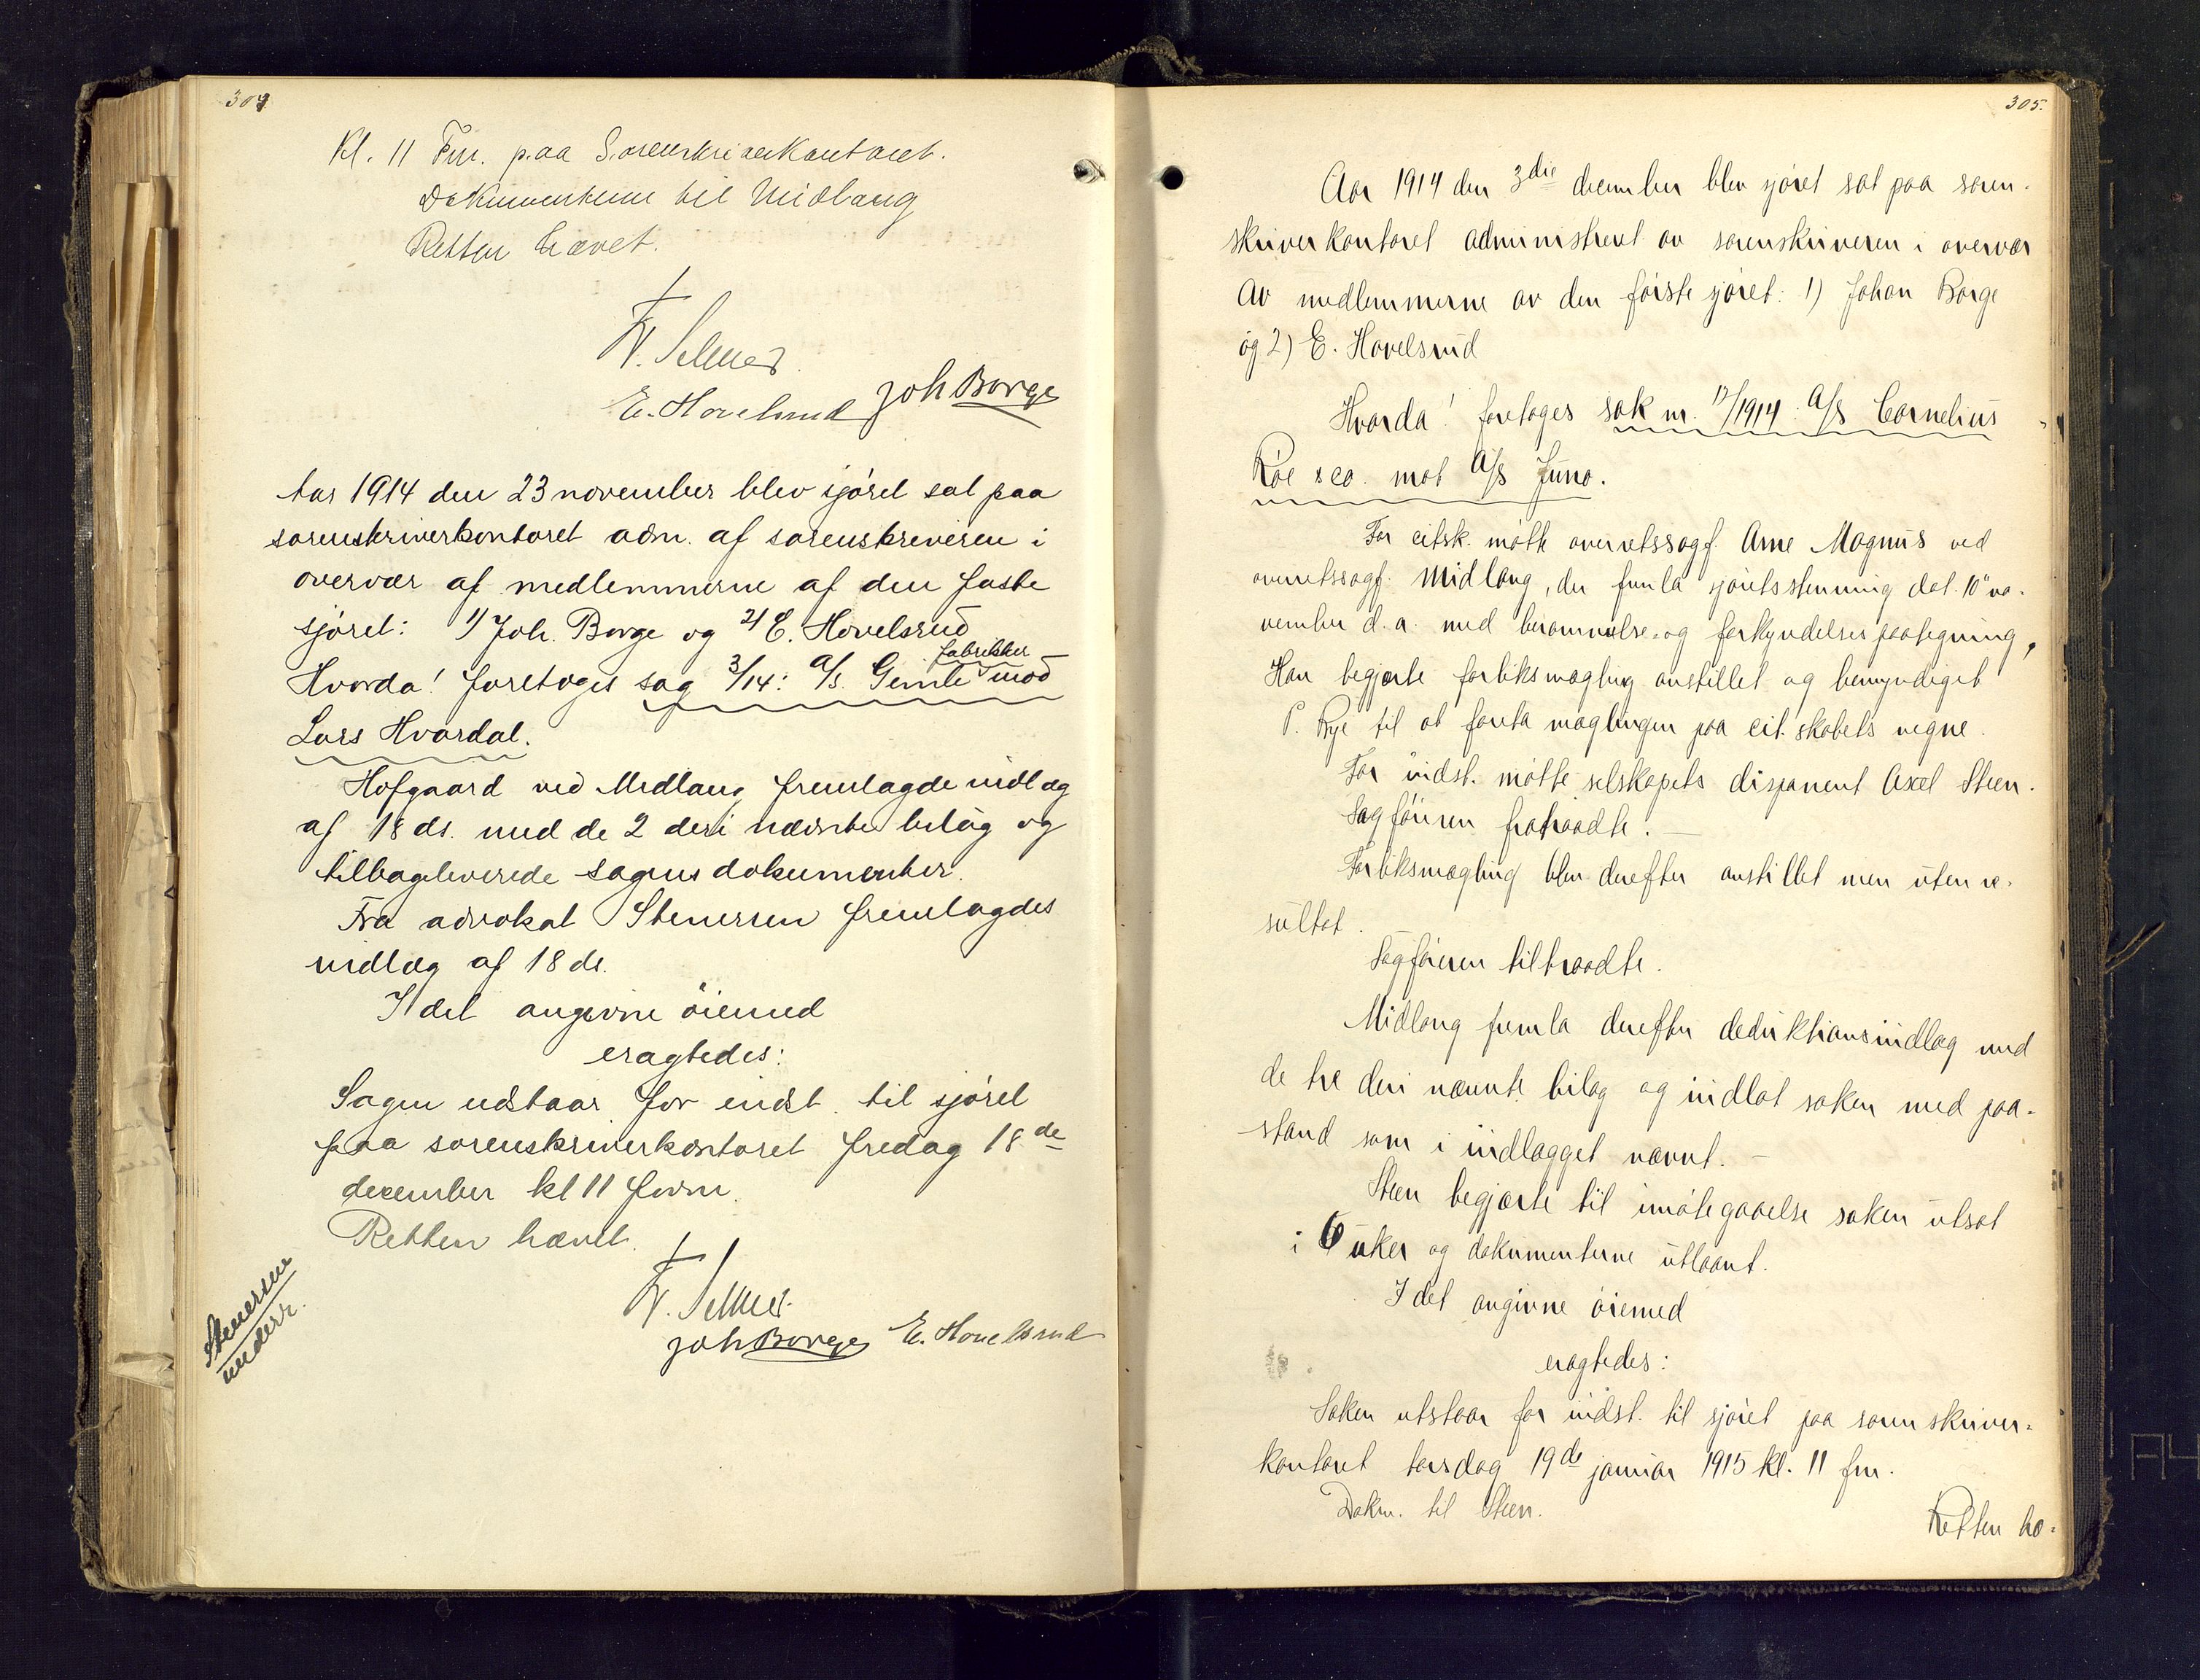 304
Kl. 11 Fm. paa Sorenskriverkontoret.
Dokumenterne til Midlang
Retten hævet.
Fr. Selmer
E. Hovelsrud Joh Borge
Aar 1914 den 23 november blev sjøret sat paa
sorenskriverkontoret adm. af sorenskriveren i
overvær af medlemmerne af den faste
sjøret: 1) Joh. Borge og 2) E. Hovelsrud
Hvorda! foretoges sag 3/14: A/S. Gimle fabrikker mod
Lars Hvardal.
Hofgaard ved Midlang fremlagde indlæg
af 18 ds. med de 2 deri nævnte bilag og
tilbageleverede sagens dokumenter.
Fra advokat Stenersen fremlagdes
indlæg af 18 ds.
I det angivne øiemed
eragtedes:
Sagen udstaar for indst. til sjøret
paa sorenskriverkontoret fredag 18de
december kl 11 form.
Retten hævet.
Fr. Selmer
Joh Borge E. Hovelsrud
Stenersen
underr.
305.
Aar 1914 den 3die december blev sjøret sat paa soren-
skriverkontoret administreret av sorenskriveren i overvær
av medlemmerne av den første sjøret: 1) Johan Borge
og 2) E. Hovelsrud
Hvorda! foretoges sak nr. 12/1914: A/S Cornelius
Røe & co. mot A/S Juno.
For citsk. møtte overretssagf. Arne Magnus ved
overretssagf. Midlang, der fremla sjøretsstevning dat. 10' no-
vember d. a. med berammelses- og forkyndelsespaategning,
Han begjærte forliksmægling anstillet og bemyndiget
P. Rye til at foreta mæglingen paa cit.skabets vegne.
For indst. møtte selskapets disponent Axel Steen.
Sagføreren fratraadte. —
Forliksmægling blev derefter anstillet men uten re-
sultat.
Sagføreren tiltraadte.
Midlang fremla derefter deduktionsindlæg med
de tre deri nævnte bilag og indlot saken med paa-
stand som i indlægget nævnt. —
Steen begjærte til imøtegaaelse saken utsat
i 6 uker og dokumenterne utlaant.
I det angivne øiemed
eragtedes:
Saken utstaar for indst. til sjøret paa sorenskriver-
kontoret torsdag 19de januar 1915 kl. 11 fm.
Dokm. til Steen.
Retten hæ-